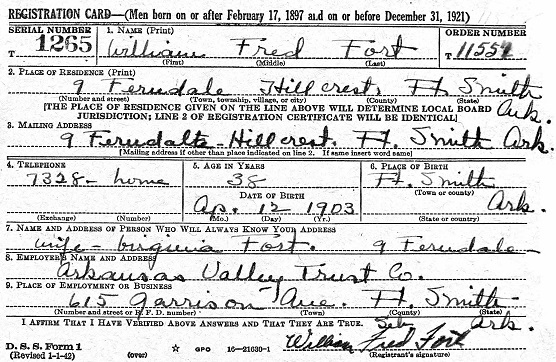 REGISTRATION CARD—(Men born on or after February 17, 1897 and on or before December 31, 1921)
SERIAL NUMBER 1. NAME (Print) ORDER NUMBER
T 1265 William Fred Fort T 11559
(First) (Middle) (Last)
2. PLACE OF RESIDENCE (Print)
9 Ferndale Hillcrest Ft. Smith Ark.
(Number and street) (Town, township, village, or city) (County) (State)
[THE PLACE OF RESIDENCE GIVEN ON THE LINE ABOVE WILL DETERMINE LOCAL BOARD
JURISDICTION; LINE 2 OF REGISTRATION CERTIFICATE WILL BE IDENTICAL]
3. MAILING ADDRESS
9 Ferndale Hillcrest. Ft. Smith Ark.
[Mailing address if other than place indicated on line 2. If same insert word same]
4. TELEPHONE 5. AGE IN YEARS 6. PLACE OF BIRTH
7328- home 38 Ft. Smith
DATE OF BIRTH (Town or county)
Ap. 12 1903 Ark.
(Exchange) (Number) (Mo.) (Day) (Yr.) (State or country)
7. NAME AND ADDRESS OF PERSON WHO WILL ALWAYS KNOW YOUR ADDRESS
wife - Virginia Fort. 9 Ferndale
8. EMPLOYER'S NAME AND ADDRESS
Arkansas Valley Trust Co.
9. PLACE OF EMPLOYMENT OR BUSINESS
615 Garrison Ave. Ft. Smith
(Number and street or R. F. D. number) (Town) (County) (State)
I AFFIRM THAT I HAVE VERIFIED ABOVE ANSWERS AND THAT THEY ARE TRUE. Seb. Ark.
D. S. S. Form 1 William Fred Fort
(Revised 1-1-42) (over) ☆ GPO 16—21630-1 (Registrant's signature)